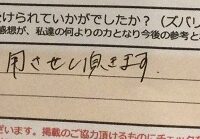 受けられていかがでしたか？（ズバリ
感想が、私達の何よりの力となり今後の参考と
用させて頂きます。
ざいます。掲載のご協力頂けるものにチェック